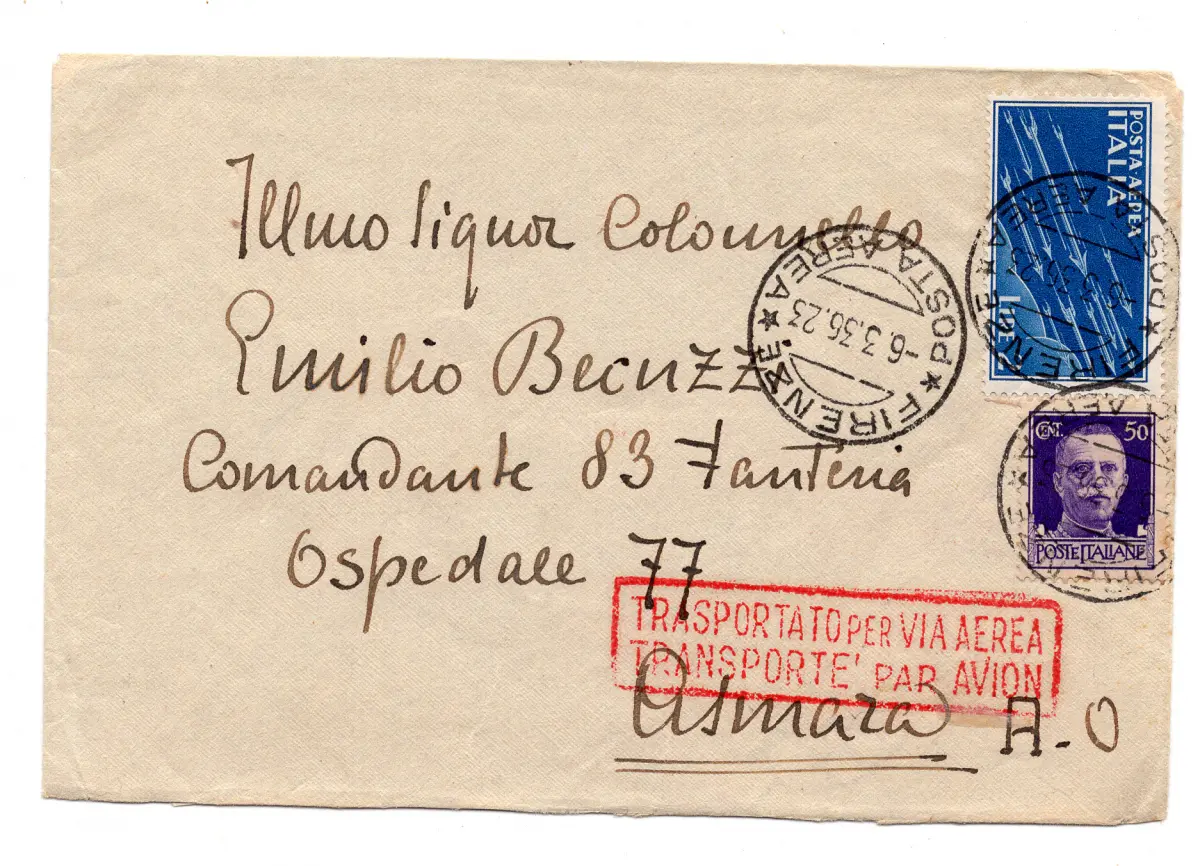 Illmo Signor Colonnello
Emilio Becuzzi
Comandante 83 Fanteria
Ospedale 77
Asmara A.O
TRASPORTATO PER VIA AEREA
TRANSPORTE' PAR AVION
FIRENZE POSTA AEREA
-6.3.36.23
POSTA AEREA
ITALIA
LIRE 2
FIRENZE POSTA AEREA
-6.3.36.23
CENT. 50
POSTE ITALIANE